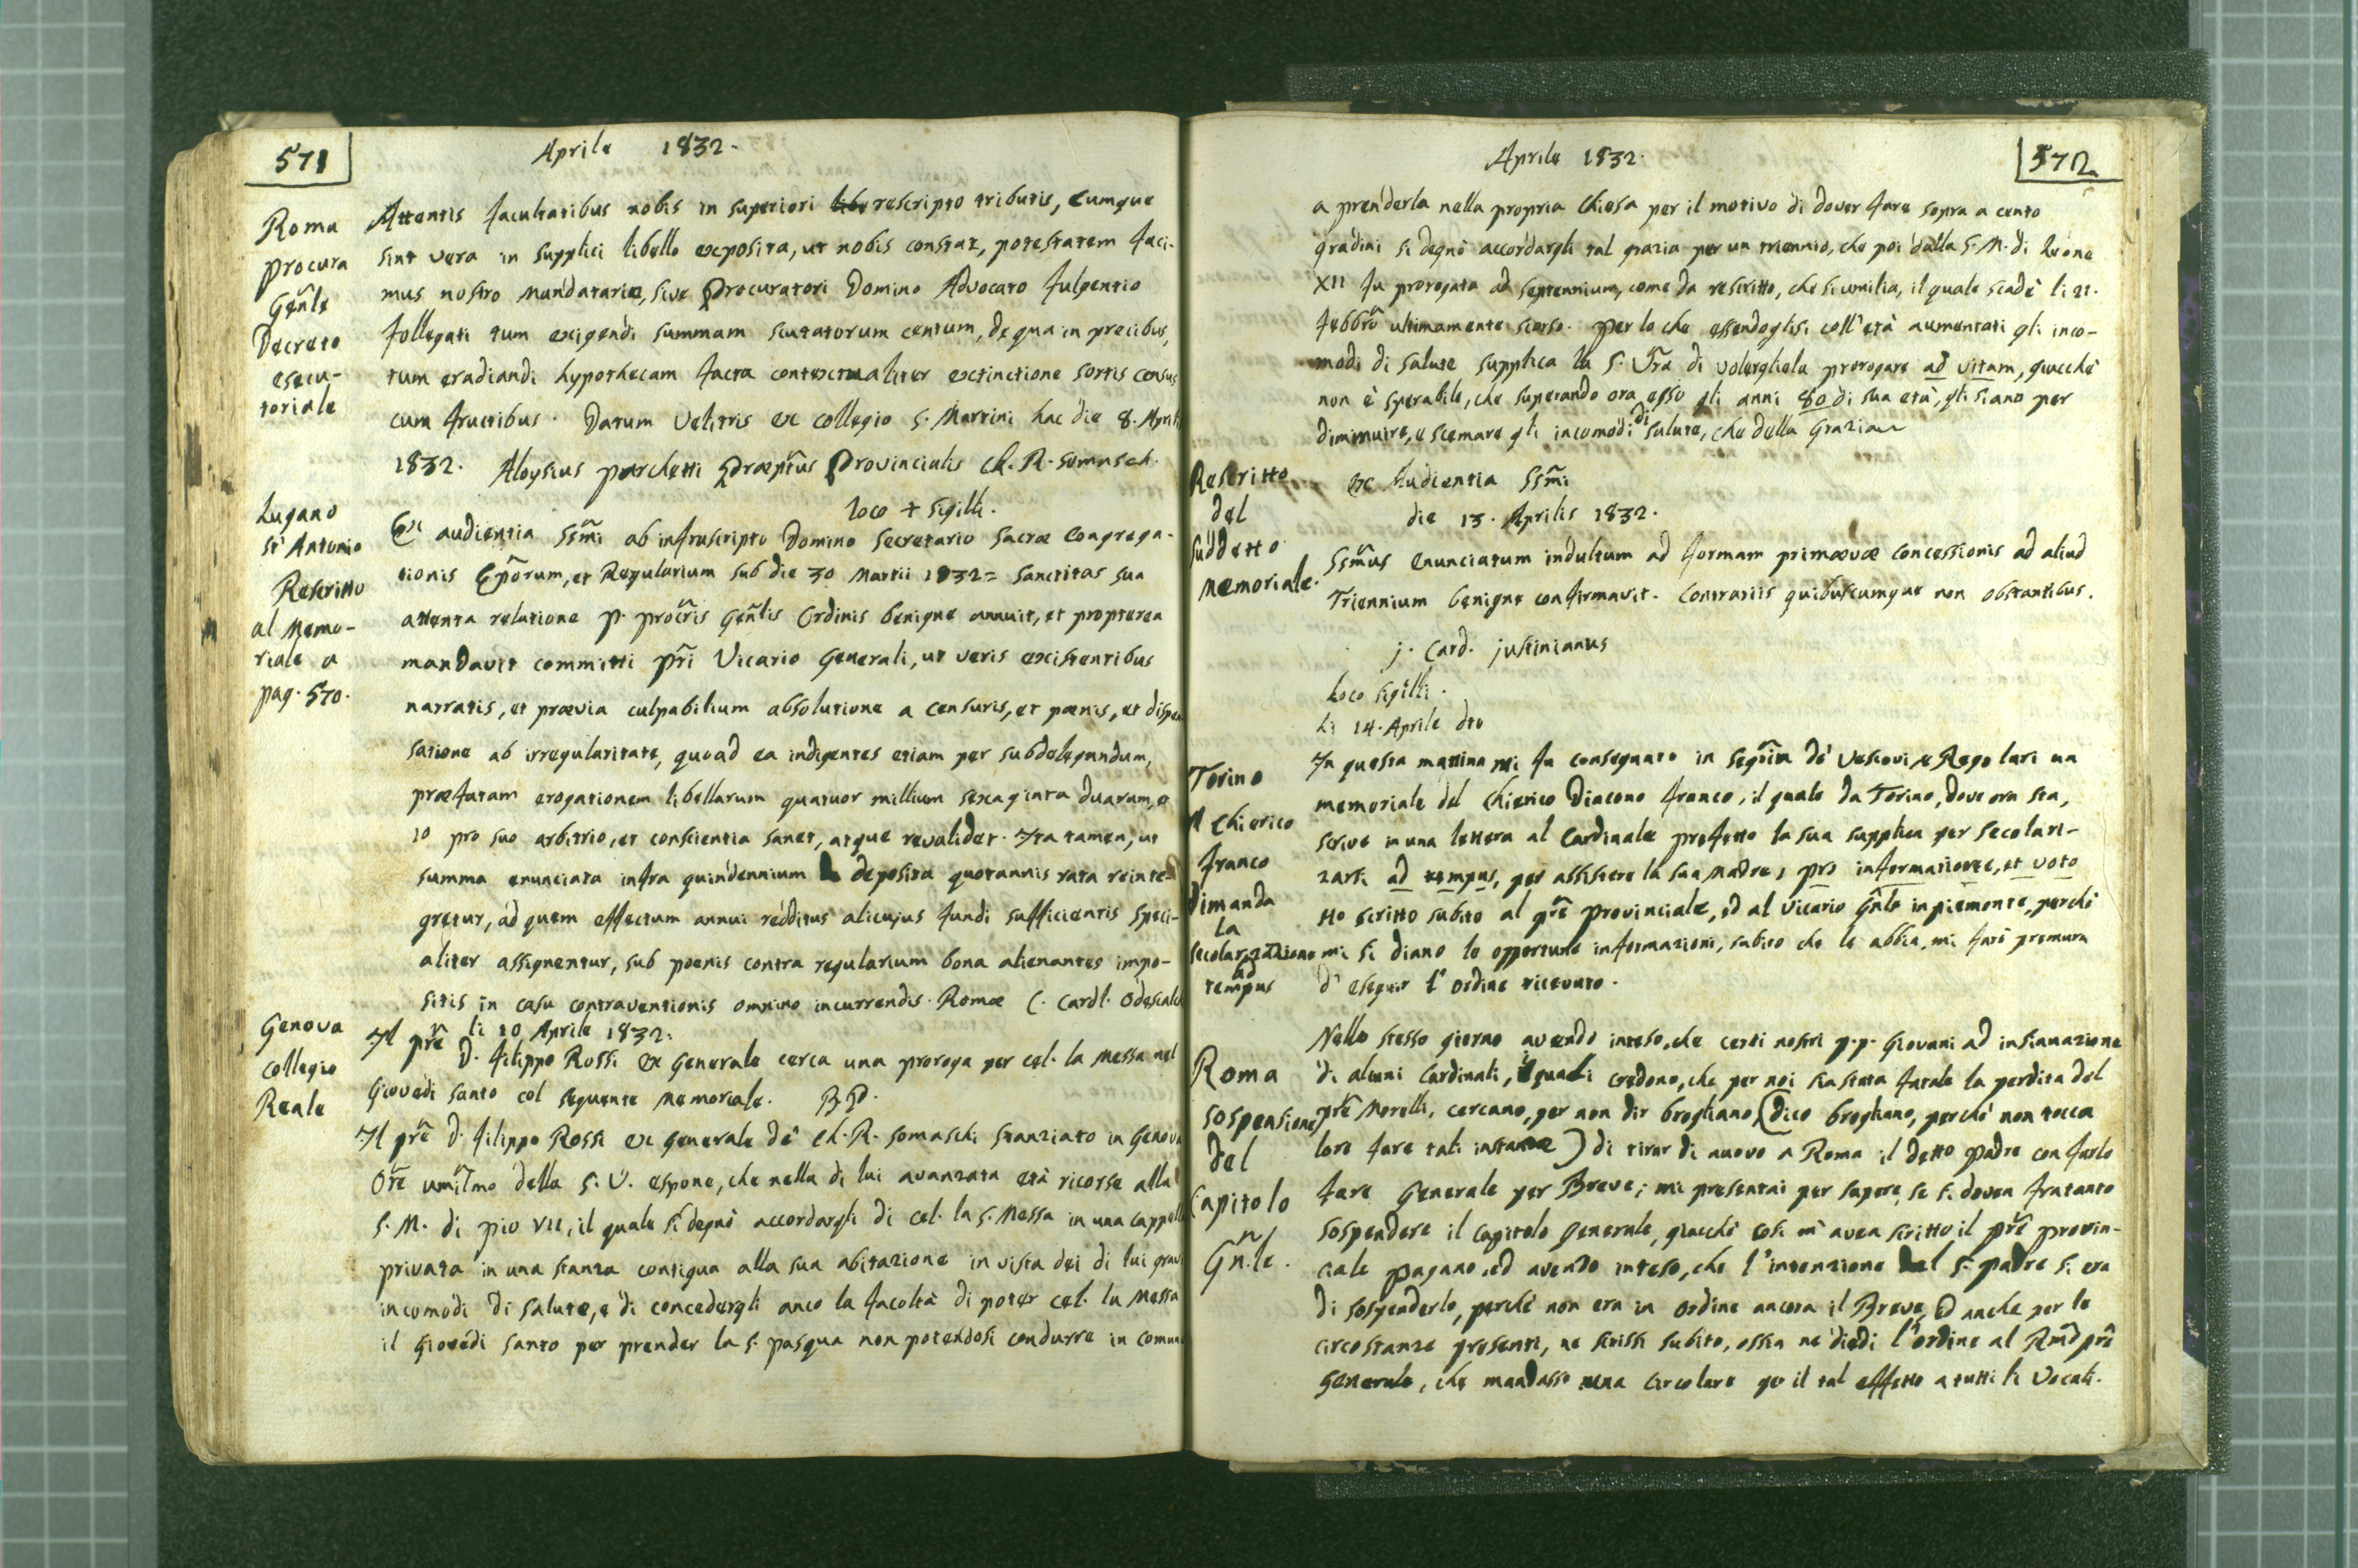 571
Aprile 1832.
Roma
procura
Gen̄le
Decreto
esecu-
toriale
Attentis facultatibus nobis in superiori rescripto tributis, cumque
sint vera in supplici libello exposita, ut nobis constat, potestatem faci-
mus nostro mandatario, sive Procuratori Domino Advocato Fulgentio
Follegati tum exigendi summam scutatorum centum, de qua in precibus,
tum eradiandi hypothecam facta contextualiter extinctione sortis census
cum fructibus. Datum Velitris ex collegio S. Martini hac die 8. April
1832. Aloysius parchetti Præptus Provincialis Cl. R. Somasch.
loco + sigilli.
Lugano
St Antonio
Rescritto
al Memo-
riale a
pag. 570.
Ex audientia SSm̃i ab infrascripto Domino Secretario Sacræ Congrega-
tionis Ep̃orum, et Regularium sub die 30 Martii 1832 = Sanctitas sua
attenta relatione P. Proc̃ris Gen̄lis Ordinis benigne annuit, et propterea
mandavit committi Pr̃i Vicario Generali, ut veris existentibus
narratis, et prævia culpabilium absolutione a censuris, et pœnis, et dispen
satione ab irregularitate, quoad ea indigentes etiam per subdelegandum,
præfatam erogationem libellarum quatuor millium sexaginta duarum, e
10 pro suo arbitrio, et conscientia sanet, atque revalidet. Ita tamen, ut
summa enunciata infra quindennium deposita quotannis rata reinte-
gretur, ad quem effectum annui redditus alicujus fundi sufficientis speci-
aliter assignentur, sub pœnis contra regularium bona alienantes impo-
sitis in casu contraventionis omnino incurrendis. Romæ C. Cardl. Odescalc
Genova
Collegio
Reale
li 10 Aprile 1832.
Il pr̃e D. Filippo Rossi ex Generale cerca una proroga per cel. la Messa nel
Giovedì Santo col seguente Memoriale. B.P.
Il pr̃e D. Filippo Rossi ex Generale de' Ch. R. Somaschi stanziato in Genova
Or̃e umil̃mo della S. V. espone, che nella di lui avanzata età ricorse alla
S. M. di Pio VII, il quale si degnò accordargli di cel. la S. Messa in una cappell
privata in una stanza contigua alla sua abitazione in vista dei di lui gravi
incomodi di salute, e di concedergli anco la facoltà di poter cel. la Messa
il Giovedì Santo per prender la S. Pasqua non potendosi condurre in comune
Aprile 1832.
572
a prenderla nella propria Chiesa per il motivo di dover fare sopra a cento
gradini si degnò accordargli tal grazia per un triennio, che poi dalla S. M. di Leone
XII fu prorogata ad septennium, come da rescritto, che si umilia, il quale scadè li 21.
Febbr̃o ultimamente scorso. per lo che essendoglisi coll'età aumentati gli inco-
modi di salute supplica la S. Vr̃a di volergliela prorogare ad vitam, giacchè
non è sperabile, che superando ora esso gli anni 80 di sua età, gli siano per
diminuire, e scemare gli incomodi di salute, che della Grazia
Rescritto
del
suddetto
Memoriale.
ex Audientia SSm̃i
die 13. Aprilis 1832.
SSm̃us enunciatum indultum ad formam primævæ concessionis ad aliud
Triennium benigne confirmavit. Contrariis quibuscumque non obstantibus.
j. Card. justinianus
Loco sigilli.
Li 14. Aprile dto
Torino
Il Chierico
Franco
Dimanda
la
secolarizzazione
ad
tempus
In questa mattina mi fu consegnato in Segr̃ia de' Vescovi, e Regolari un
memoriale del Chierico Diacono Franco, il quale da Torino, dove ora sta,
scrive in una lettera al Cardinale prefetto la sua supplica per secolari-
zarsi ad tempus, per assistere la sua Madre, pro informatione, et voto
Ho scritto subito al pr̃e Provinciale, ed al Vicario Gn̄le in piemonte, perchè
mi si diano le opportune informazioni, subito che le abbia, mi farò premura
d'eseguir l'ordine ricevuto.
Roma
Sospensione
del
Capitolo
Gn̄.le.
Nello stesso giorno avendo inteso, che certi nostri p.p. Giovani ad insinuazione
di alcuni Cardinali, i quali credono, che per noi sia stata fatale la perdita del
pr̃e Morelli, cercano, per non dir brogliano, (dico brogliano, perchè non tocca
loro fare tali instanze) di tirar di nuovo a Roma il detto Padre con farlo
fare Generale per Breve; mi presentai per sapere, se si dovea fratanto
sospendere il Capitolo Generale, giacchè così m'avea scritto il pr̃e provin-
ciale Pagano, ed avendo inteso, che l'intenzione del S. Padre si era
di sospenderlo, perchè non era in ordine ancora il Breve, ed anche per le
circostanze presenti, ne scrissi subito, ossia ne diedi l'ordine al Rm̃o pr̃e
Generale, che mandasse una circolare per il tal effetto a tutti li Vocali.